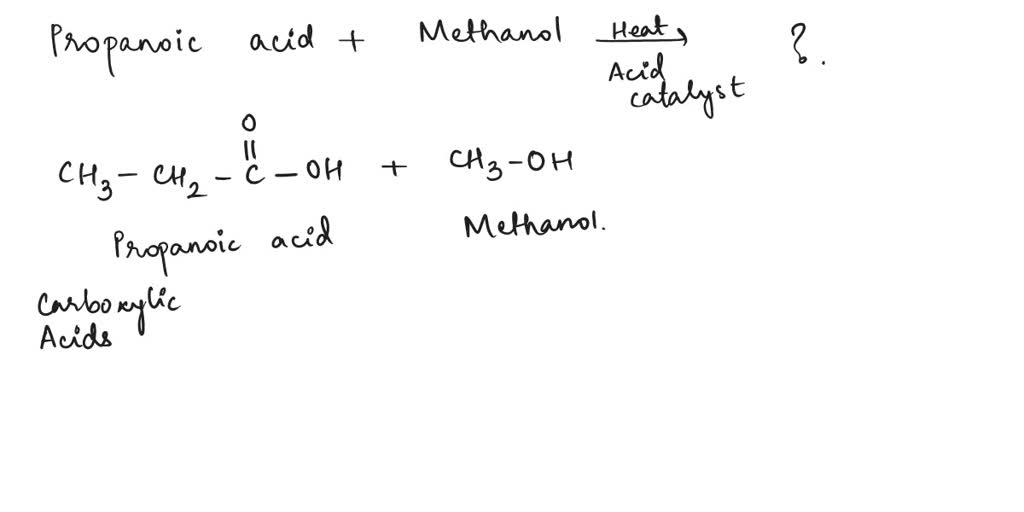 Propanoic acid + Methanol Heat → ?.
Acid
catalyst
O
||
CH3 – CH2 – C – OH + CH3–OH
Propanoic acid Methanol.
Carboxylic
Acids